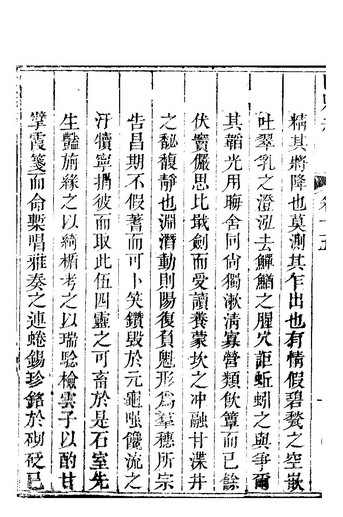 精其將降也莫測其乍出也有情假碧甃之空嵌
吐翠乳之澄泓去鱓鰌之腥穴詎蚯蚓之與爭爾
其韜光用晦舍同尙獨漱清寡營類飮簞而已餘
伏竇儼思比戢劍而受讀養蒙坎之冲融甘渫井
之祕馥靜也淵潛動則陽復負魁形爲羣穟所宗
告昌期不假蓍而可卜笑鑽毀於元龜嗤饞流之
汙犢寧捐彼而取此伍四靈之可畜於是石室先
生豔旃緣之以綺楯考之以瑞騐檢雲子以酌甘
擘霞箋而命槧唱雅奏之連蜷錫珍銘於砌硬已